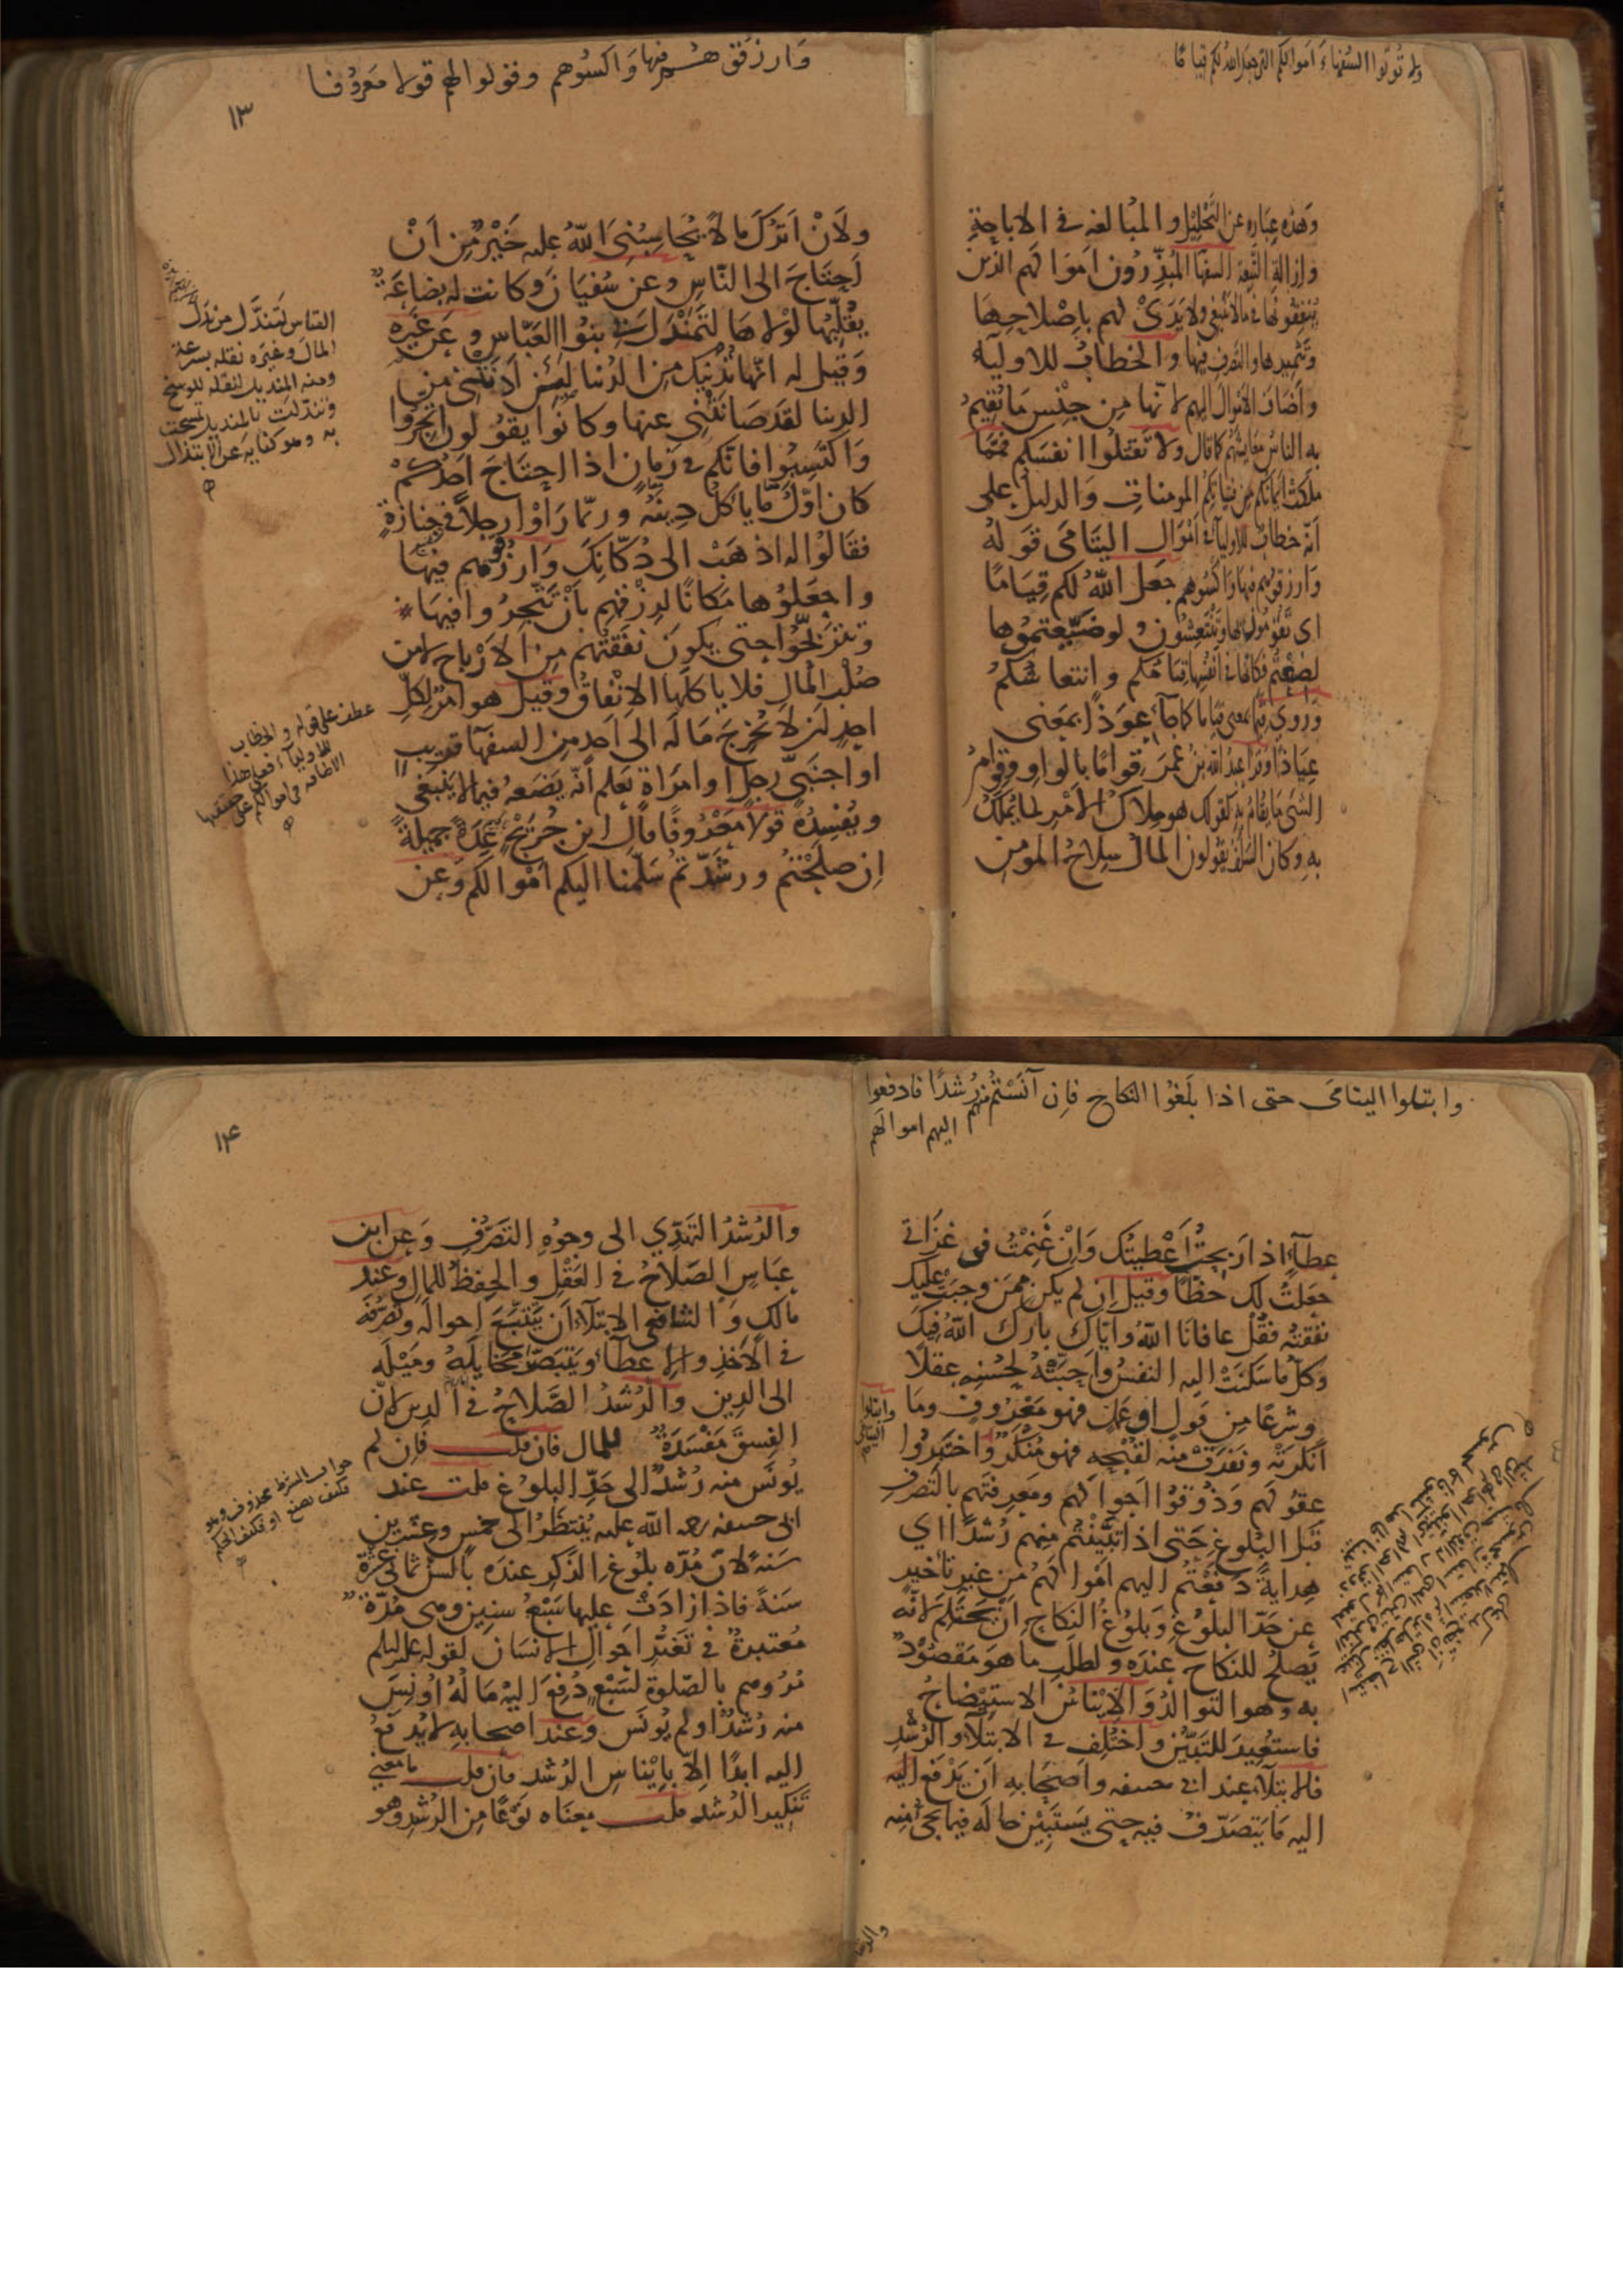 ولا تؤتوا السفهاء اموالكم التي جعل الله لكم قياما
وَهذه عِبَارة عن التَحْلِيْل والمُبَالغة في الاباحةِ
وازالةِ التَّبِعة السفهآ المُبَذِّرُون اَموَالهم الذين
يُنفِقُونَها فيما لا يَنْبَغي ولا يَدَىْ لهم بِاِصْلاحِهَا
وَتَثْمِيرِها والتصرف فيها والخطابُ للاوليآء
واَضَاف الاَمْوَال اليهم لانّها مِن جِنْسِ مَا يُقِيمُ
به الناسُ مَعَايِشَهُم كما قال ولا تَقتلُوا انفسَكم فَمِمَّا
ملَكَتْ اَيْمَانكم مِن فَتَيَاتِكُم المومنات وَالدليلُ على
اَنّه خطابٌ للاوليآء في اَمْوَال اليتَامَى قَوله
وَارزقُوهم فيها وَاكْسُوهم جعل الله لكم قِيَامًا
اى تَقُومُون بها وتَنْتَعِشُون ولو ضَيَّعتموُها
لَضِعْتُم فكانها في انفُسِها قيامُكم وانتعاشُكمْ
وَرُوىَ قِيَمًا بمعنى قيامًا كما جآءَ عِوَذًا بمَعْنى
عِيَاذًا وقرا عبدُ الله بن عُمَرَ قِوَامًا بالواو وقِوَامُ
الشىء مَا يُقامُ به كقولك هو مِلاكُ الاَمْرِ لما يُمْلَكُ
به وكان السَلَف يقولون المال سِلاحُ المومن
وَارزقوهم فيها وَاكسُوهم وقولوا لهم قولا مَعروُفا
١٣
ولَاَنْ اَتْرُكَ مَالًا يُحَاسِبُنِىَ اللهُ عليه خَيْرٌ مِّن اَنْ
اَحتَاجَ الى النّاسِ وعن سُفيَانَ وَكانت له بِضَاعَةٌ
يُقَلِّبُها لَوْلَا هَا لتَمَنْدَلَ بي بنوُا العَبّاسِ وعن غيرهِ
وَقيل له اِنّها تُدْنيك مِنَ الدُنيا لَئن اَدنَتْني من
الدنيا لقد صَانَتْني عنها وكانُوا يقوُلون اتّجروُا
وَاكْتَسِبُوا فانّكم في زمانٍ اذا احتَاجَ احَدُكمْ
كان اوّلُ مَا يَاكُل دِينَهُ وربّما رَاَوْا رجلاً في جِنازةٍ
فقَالُوْا له اذهَبْ الى دُكّانِكَ وَارزقوُهم فيهَا
واجعَلوُها مَكانًا لرِزْقهم بأنْ تتَّجِرُوا فيهَا
وَتتربّحُوا حتى يكون نفقَتُهم مِن الاَرْبَاحِ لا من
صُلْبِ المَالِ فلا ياكلها الانْفاقُ وقيل هو امرٌ لِكلِّ
احدٍ اَن لا يُخْرِجَ مَاله الى اَحدٍ مِن السفهآءِ قريبٍ
او اجنَبيٍّ رجلٍ او امرَاةٍ يَعلم اَنّه يَضَعهُ فيما لا يَنْبَغى
ويُفْسِدُهُ قولاً مَعْروُفًا قال ابن جُرَيْجٍ عِدَةً جَمِيلَةً
اِن صلَحْتُم ورشَدْتُم سَلّمنا اليكم اَمْوالكم وَعن
القاس تمندَل من نَدَلَ
المالَ وغيَره نقله بسرعة
ومنه المنديل لنقله للوسخ
وتندّلت بالمنديل تمسحت
به وهو كناية عن الابتذال
عطف على قوله والخطاب
للاوليآء فعلى هذا
الاضافه في اموالكم على حقيقتها
وابتلوا اليتامىَ حتى اذا بلَغوُا النكاح فاِن آنَسْتُم منهم رُشدًا فادفعوا
اليهم اموالَهم
عطآءٍ اذا رَبحتُ اَعْطيتُك وَاِنْ غَنِمْتُ فى غَزَاتي
جعَلتُ لك حَظًّا وقيل اِن لم يكن مِمَّن وجبَتْ عليك
نفقتُه فَقُلْ عافانَا اللهُ وايّاك بارك اللهُ فيك
وَكلّ ماسَكنَتْ اليه النفسُ واَحبَّتْهُ لحُسْنِه عقلًا
وشرعًا مِن قولٍ اوعملٍ فهو مَعْروفٌ ومَا
اَنكرَتْه ونفَرَتْ منه لقُبْحِه فهو مُنكَرٌ وَاختبروُا
وابتلوا
اليتامى
عقوُلهم وَذُوقوُا اَحوالهم ومَعرفتَهم بالتصرفِ
قَبْل البُلوغِ حَتى اذا تبَيَّنْتُم مِنهم رُشدًا اى
هِدايةً دَفَعْتُم اليهم اَمْوالَهُم مِن غير تاخيرٍ
عن حَدِّ البلوُغِ وَبُلُوغُ النكاح اَنْ يَحتَلِمَ لانّه
يَصلحُ للنكاح عنده ولطلَبِ ما هو مَقصُوْدٌ
به وهو التوالدُ وَالايْنَاسُ الاسْتِيْضَاحُ
فاستُعِيرَ للتَبيُّنِ وَاختُلِف في الابتلآءِ والرُشْدِ
فالابتلآءُ عند ابى حنيفه واَصْحَابهِ اَن يَدْفَع اليه
اليه مَا يَتصَرّفُ فيه حتى يَسْتَبِيْنَ حَالَه فيما يجىُ منه
١٤
والرُشدُ التهَدّي الى وجوُهِ التصَرُّفِ وعن ابن
عبَاسِ الصَلاحُ في العَقْلِ والحِفظُ للمالِ وعند
مالكٍ وَالشافعى الابتلآءُ اَن يَتتَبّعَ احوَاله وتصَرُّفَهُ
في الاَخذِ والاعطآءِ ويَتبَصّرَ مَخايلَه وميْلَه
الى الدِين والرُشدُ الصَّلاحُ في الدِين لانّ
الفِسقَ مَفْسَدَةٌ للمال فان قلت فاِن لم
يُونَس منه رُشدٌ الى حَدِّ البلوُغِ قلت عند
ابى حنيفه رحمه الله عليه يُنتظَرُ الى خمسٍ وعشرين
سَنهً لانّ مُدّه بلُوْغِ الذَكرِ عنده بالسنّ ثمانى عَشْرةَ
سَنةً فاذا زادَتْ عليها سَبْعُ سنين وهى مُدّةٌ
مُعتبرةٌ في تَغيُّر احوَالِ الانسَان لقوله عليه السلم
مُرُوهم بالصّلوة لسَبْعٍ دُفِعَ اليْه مَالُه اُونِسَ
منه رُشدٌ او لم يُونَس وعند اصحابِه لا يُدفَعُ
اليه ابدًا اِلّا بايْناسِ الرُشد فان قلت ما معنى
تنكير الرُشد قلت معناه نوعًا من الرُشد وهو
جواب الشرط محذوف وهو
فكيف نصنع او فكيف الحكم